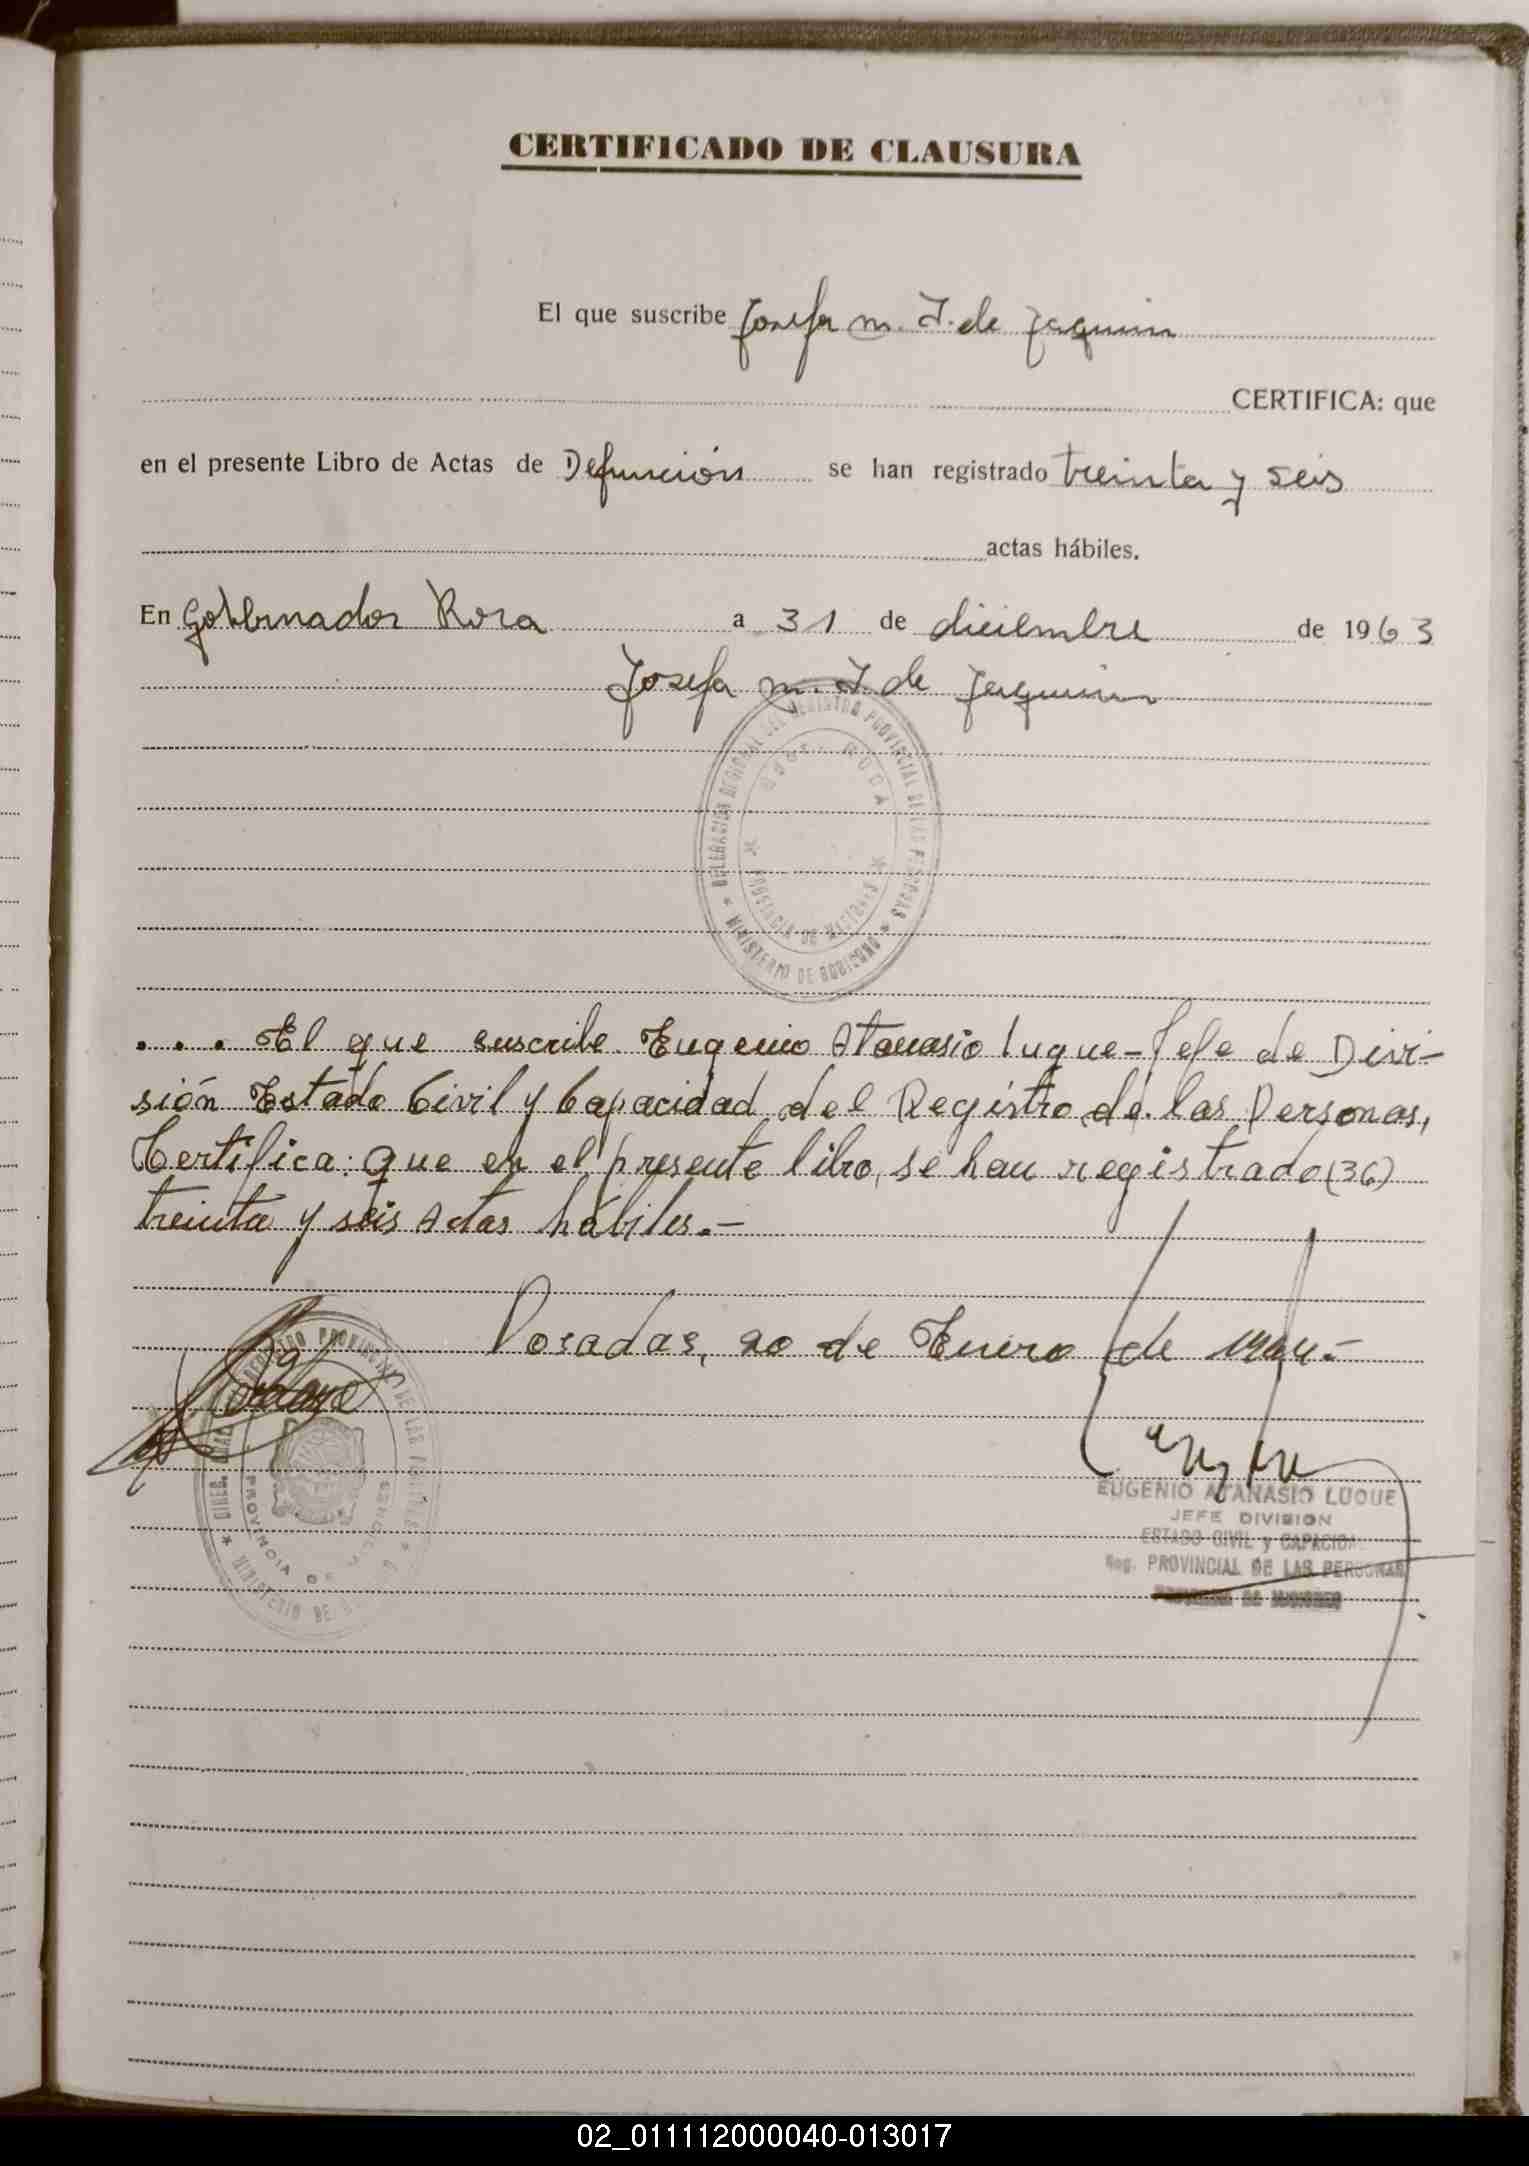 CERTIFICADO DE CLAUSURA
El que suscribe Josefa m. J. de Jaquim
CERTIFICA: que
en el presente Libro de Actas de Defunción se han registrado treinta y seis
actas hábiles.
En Gobernador Roca a 31 de diciembre de 1963
Josefa m. J. de
DELEGACION REGIONAL DEL REGISTRO PROVINCIAL DE LAS PERSONAS
ROCA
PROVINCIA DE MISIONES
MINISTERIO DE GOBIERNO
. . . El que suscribe Eugenio Atanasio Luque - Jefe de Divi-
sión Estado Civil y Capacidad del Registro de las Personas,
Certifica: que en el presente libro, se han registrado (36)
treinta y seis Actas hábiles.-
Posadas, 20 de Enero de 1964.-
PROVINCIAL DE LAS
PROVINCIA DE
MINISTERIO DE
EUGENIO ATANASIO LUQUE
JEFE DIVISION
ESTADO CIVIL y CAPACIDA
Reg. PROVINCIAL DE LAS PERSONAS
02_011112000040-013017